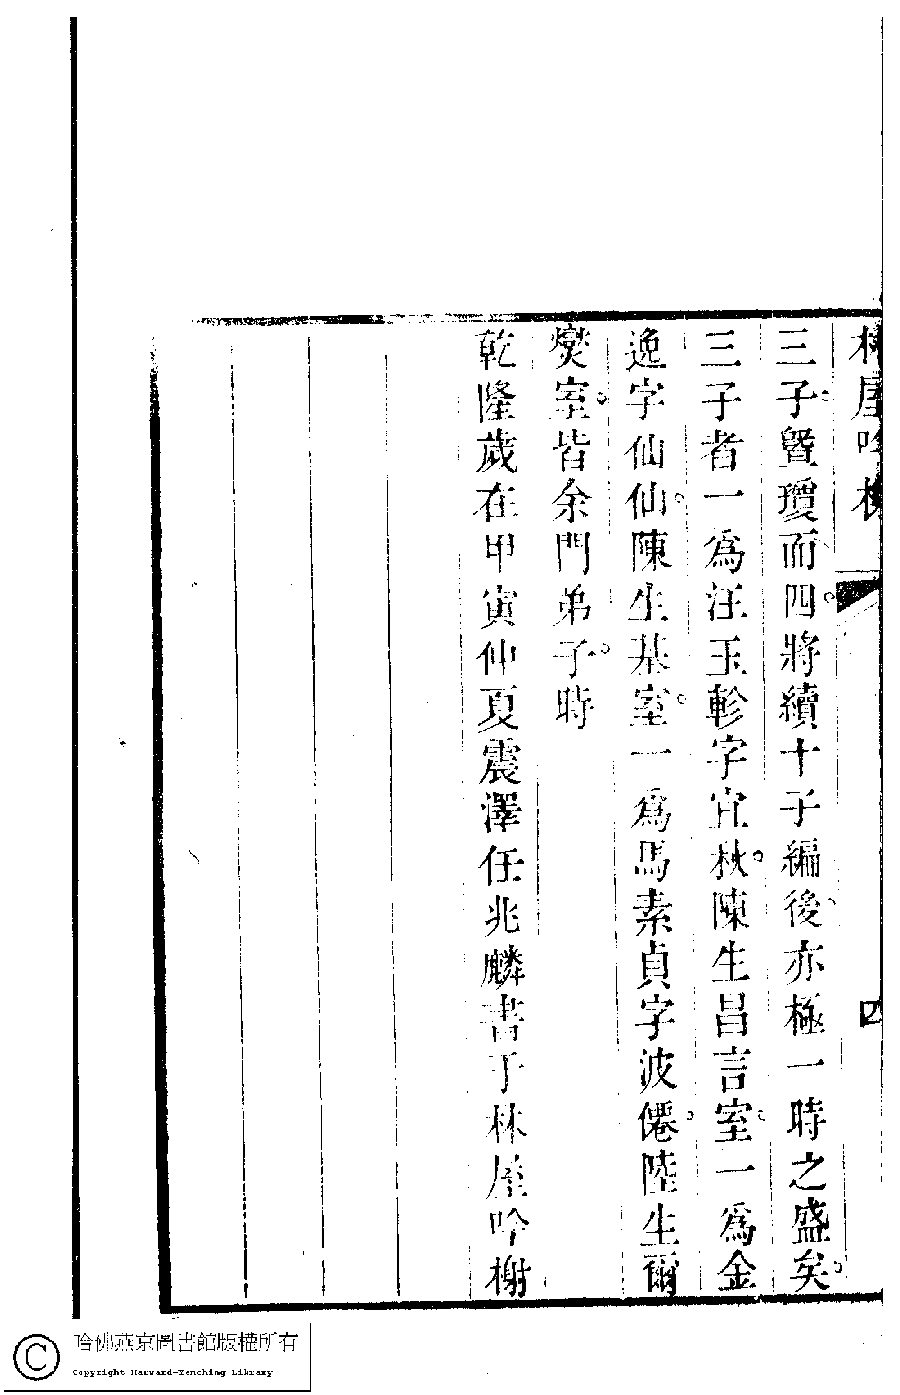 林屋吟榭
四
三子曁瓊而四將續十子編後亦極一時之盛矣
三子者一爲汪玉軫字宜秋陳生昌言室一爲金
逸字仙仙陳生基室一爲馬素貞字波僊陸生爾
爕室皆余門弟子時
乾隆歲在甲寅仲夏震澤任兆麟書于林屋吟榭
哈佛燕京圖書館版權所有
Copyright Harvard-Yenching Library